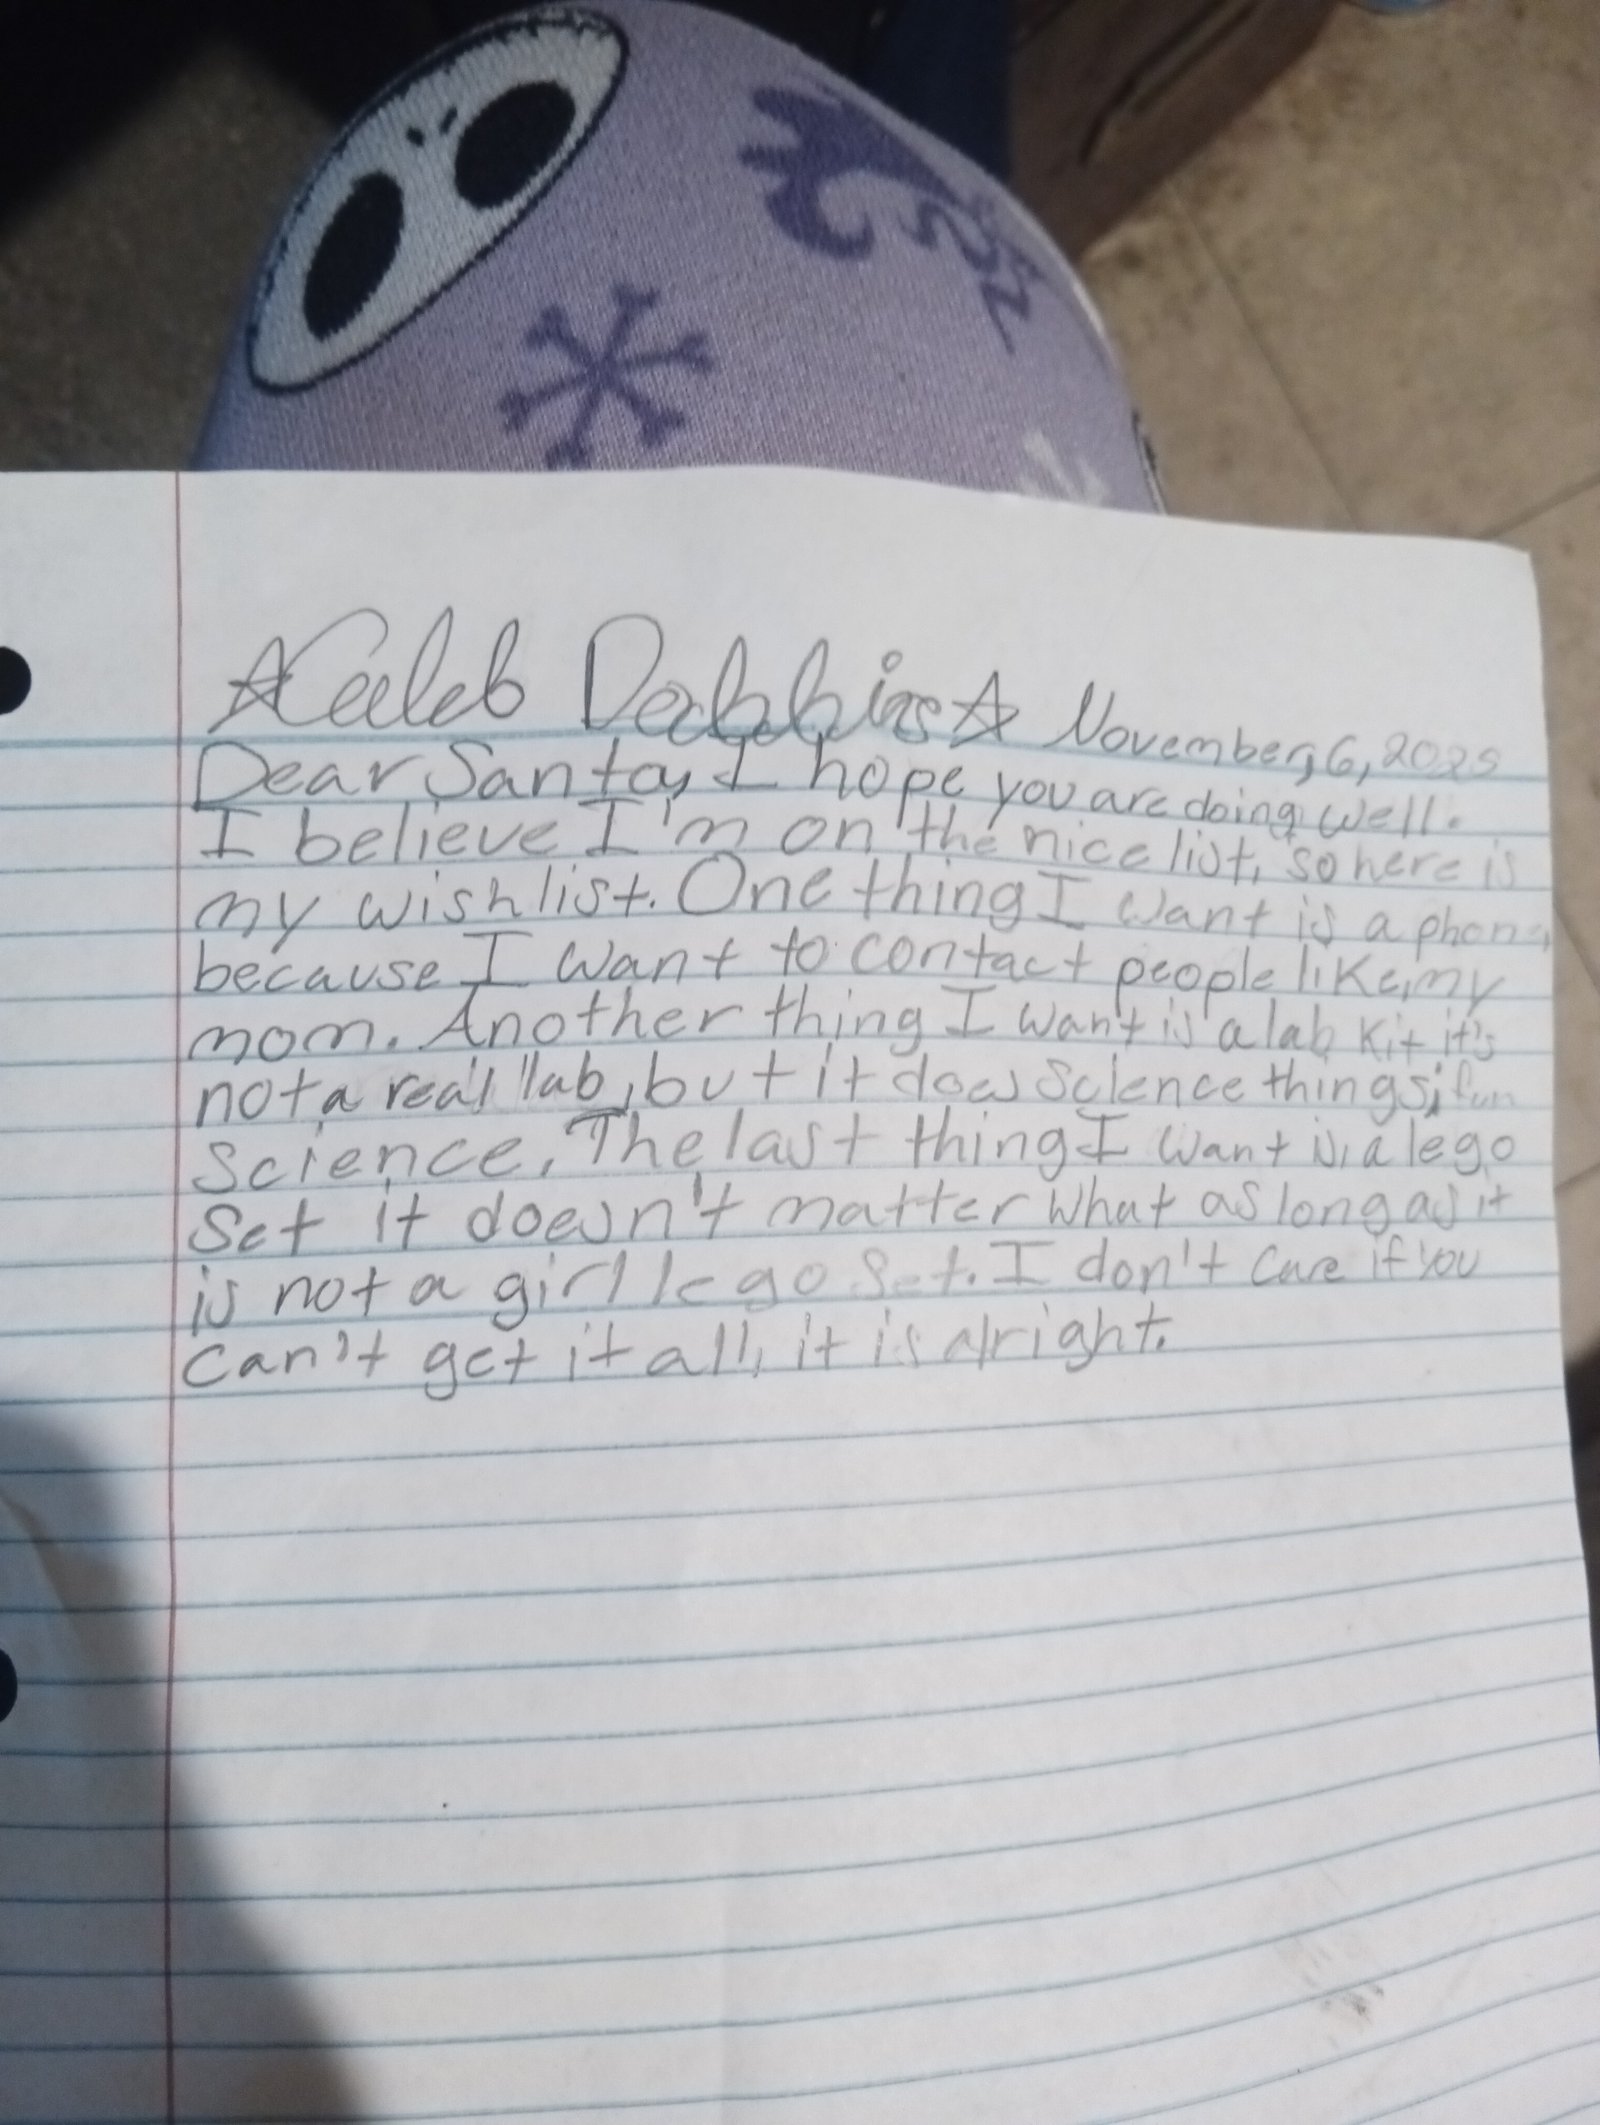 ☆Caleb Dabbins☆ November, 6, 2025
Dear Santa, I hope you are doing well.
I believe I'm on the nice list, so here is
my wishlist. One thing I want is a phone,
because I want to contact people like, my
mom. Another thing I want is a lab kit it's
not a real lab, but it does science things, fun
science. The last thing I want is, a lego
set it doesn't matter what as long as it
is not a girl lego set. I don't care if you
can't get it all, it is alright.